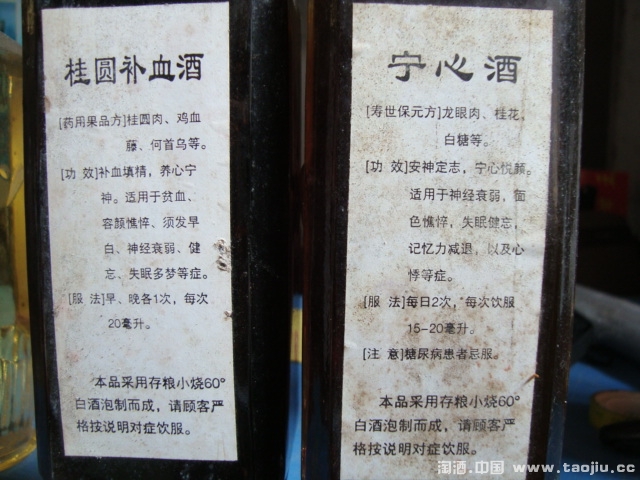 桂圆补血酒
[药用果品方]桂圆肉、鸡血
藤、何首乌等。
[功 效]补血填精，养心宁
神。适用于贫血、
容颜憔悴、须发早
白、神经衰弱、健
忘、失眠多梦等症。
[服 法]早、晚各1次，每次
20毫升。
本品采用存粮小烧60°
白酒泡制而成，请顾客严
格按说明对症饮服。
宁心酒
[寿世保元方]龙眼肉、桂花、
白糖等。
[功 效]安神定志，宁心悦颜。
适用于神经衰弱，面
色憔悴，失眠健忘，
记忆力减退，以及心
悸等症。
[服 法]每日2次，每次饮服
15-20毫升。
[注 意]糖尿病患者忌服。
本品采用存粮小烧60°
白酒泡制而成，请顾客严
格按说明对症饮服。
淘酒.中国 www.taojiu.cc